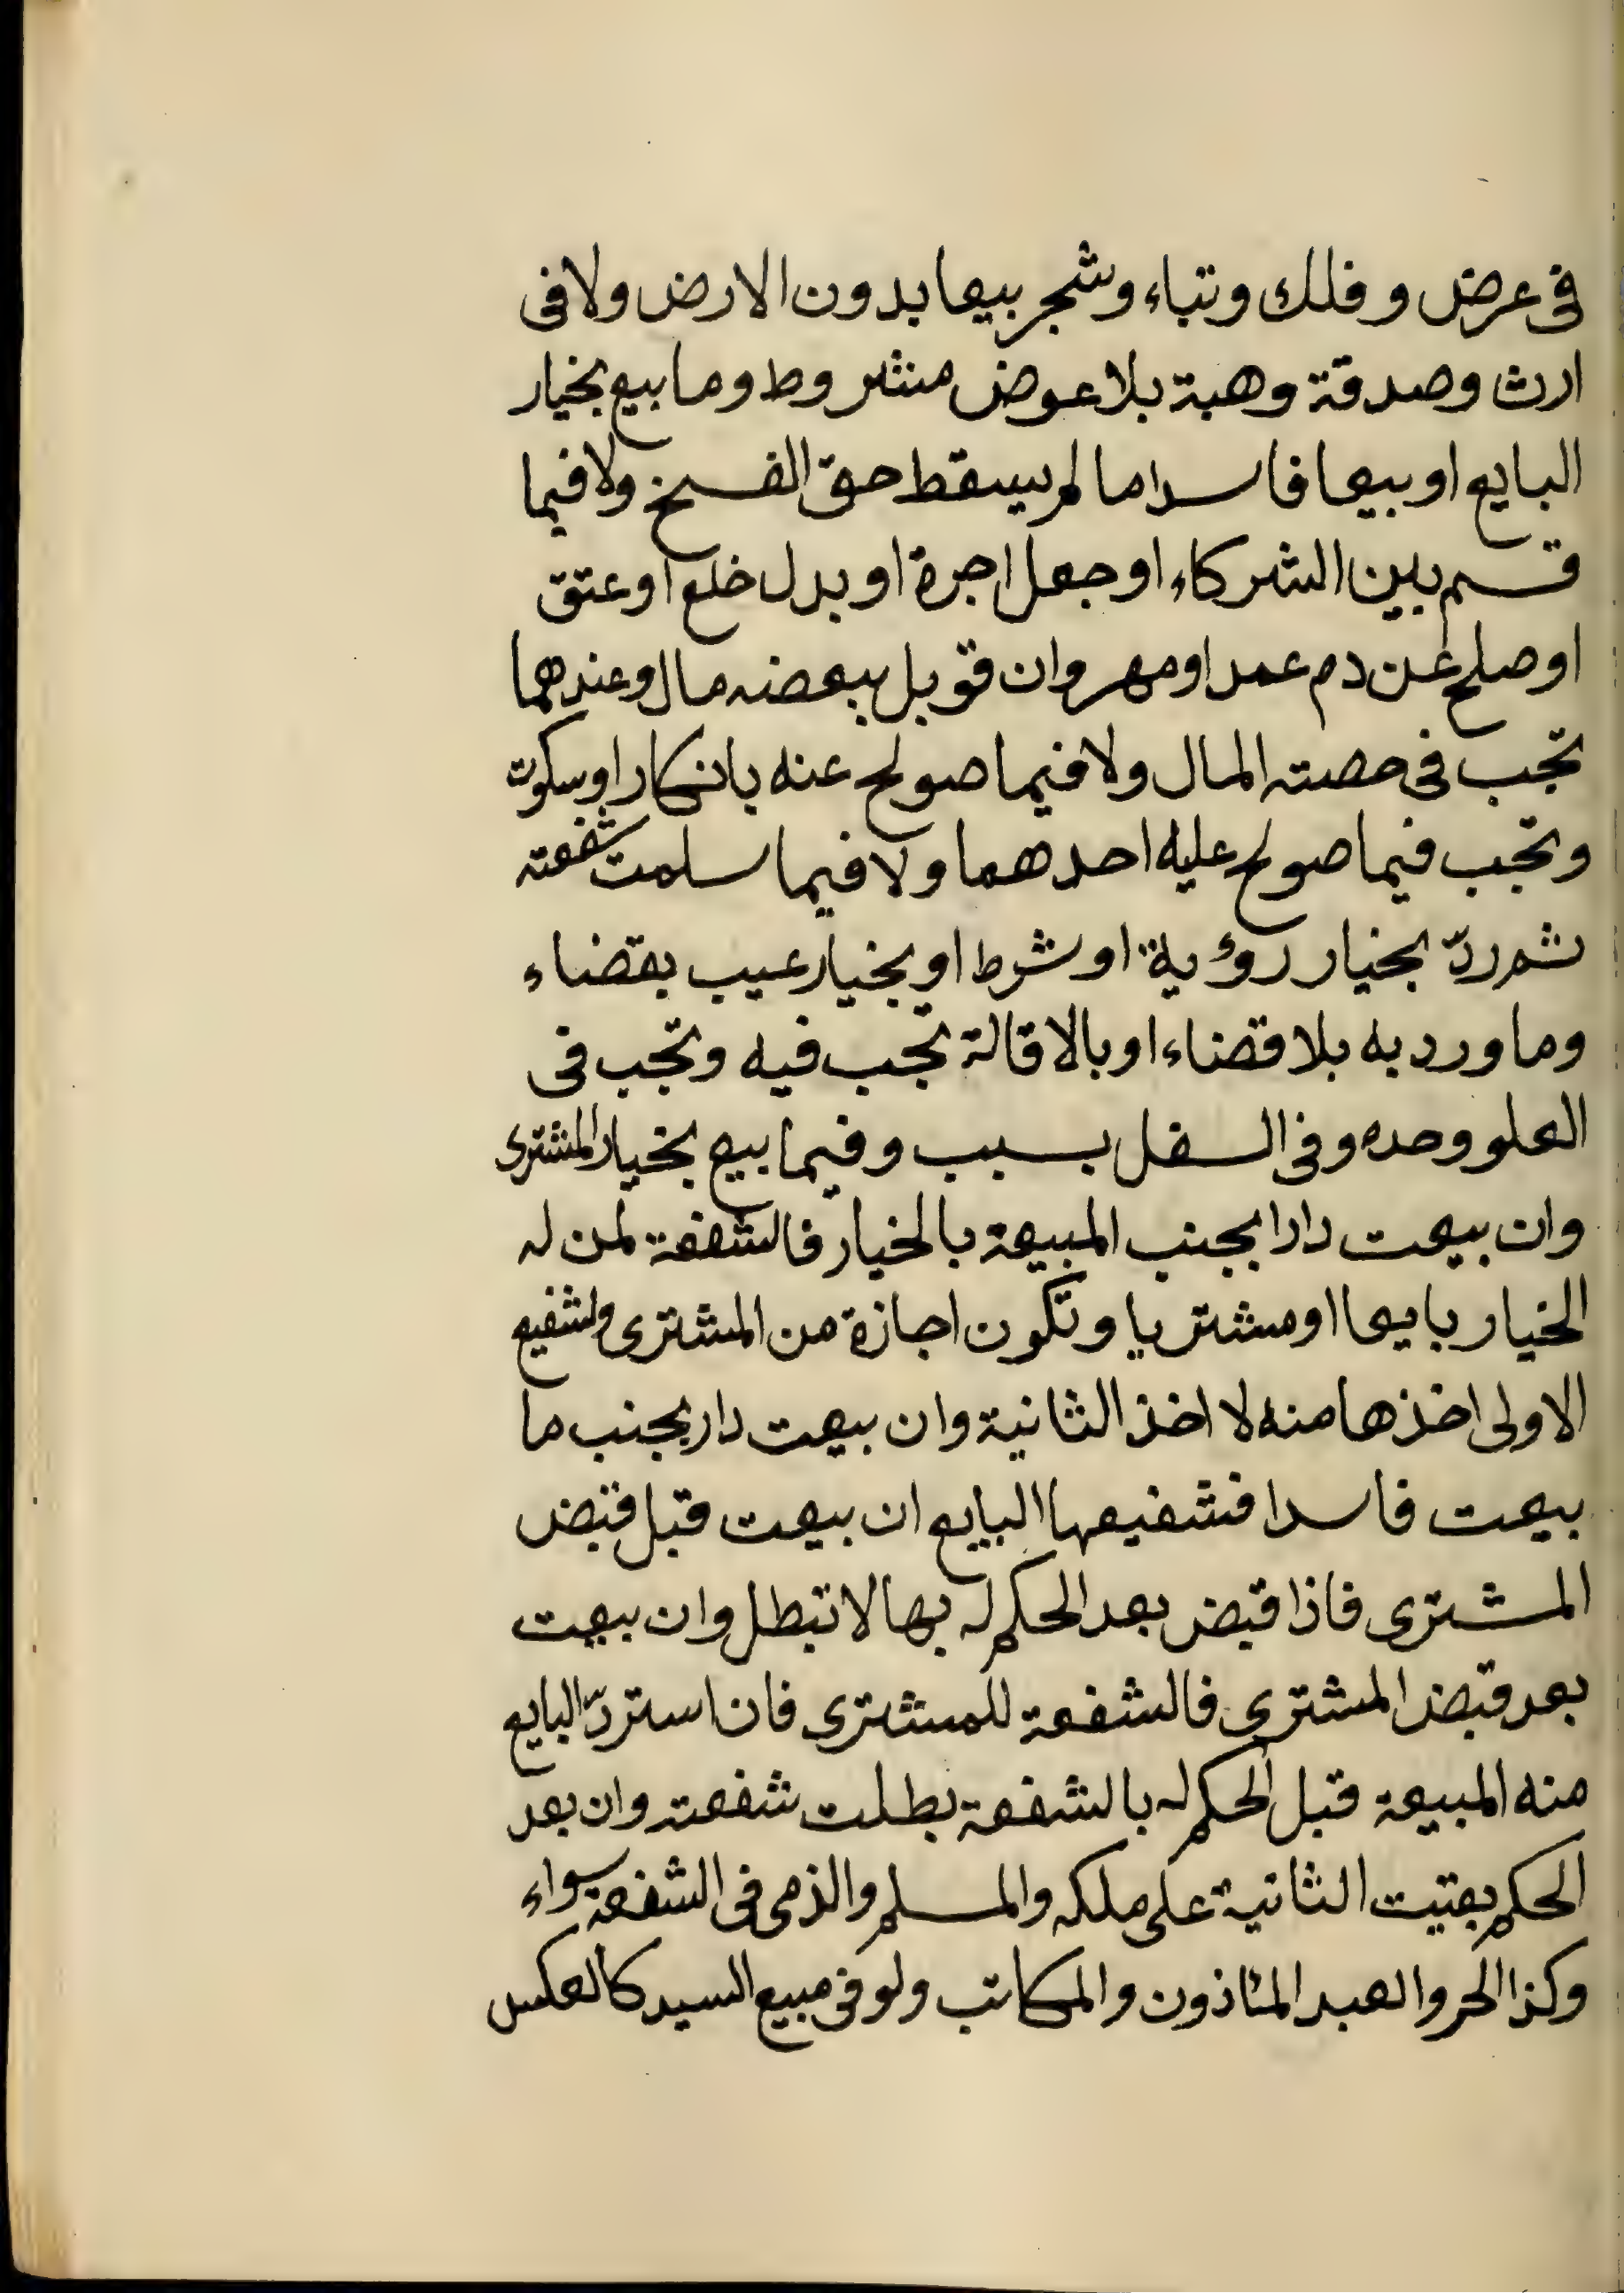 فى عرض وفلك وبناء وشجر بيعا بدون الارض ولا فى
ارث وصدقة وهبة بلا عوض مشروط وما بيع بخيار
البايع او بيعا فاسدا ما لم يسقط حقّ الفسخ ولا فيما
قسم بين الشركاء او جعل اجرة او بدل خلع او عتق
او صلح عن دم عمد او مهر وان قوبل ببعضه مال وعندهما
تجب فى حصته المال ولا فيما صولح عنه بانكار او سكوت
وتجب فيما صولح عليه احدهما ولا فيما سلمت شفعته
ثم ردّ بخيار رؤية او شرط او بخيار عيب بقضاء
وما ورد به بلا قضاء او بالاقالة تجب فيه وتجب فى
العلو وحده وفى السفل بسبب وفيما بيع بخيار المشترى
وان بيعت دارا بجنب المبيعة بالخيار فالشفعة لمن له
الخيار بايعا او مشتريا وتكون اجازة من المشترى ولشفيع
الاولى اخذها منه لا اخذ الثانية وان بيعت دار بجنب ما
بيعت فاسدا فشفيعها البايع ان بيعت قبل قبض
المشترى فاذا قبض بعد الحكم له بها لا تبطل وان بيعت
بعد قبض المشترى فالشفعة للمشترى فان استردّ البايع
منه المبيعة قبل الحكم له بالشفعة بطلت شفعته وان بعد
الحكم بقيت الثانية على ملكه والمسلم والذمى فى الشفعة سواء
وكذا الحر والعبد المئاذون والمكاتب ولو فى مبيع السيد كالعكس